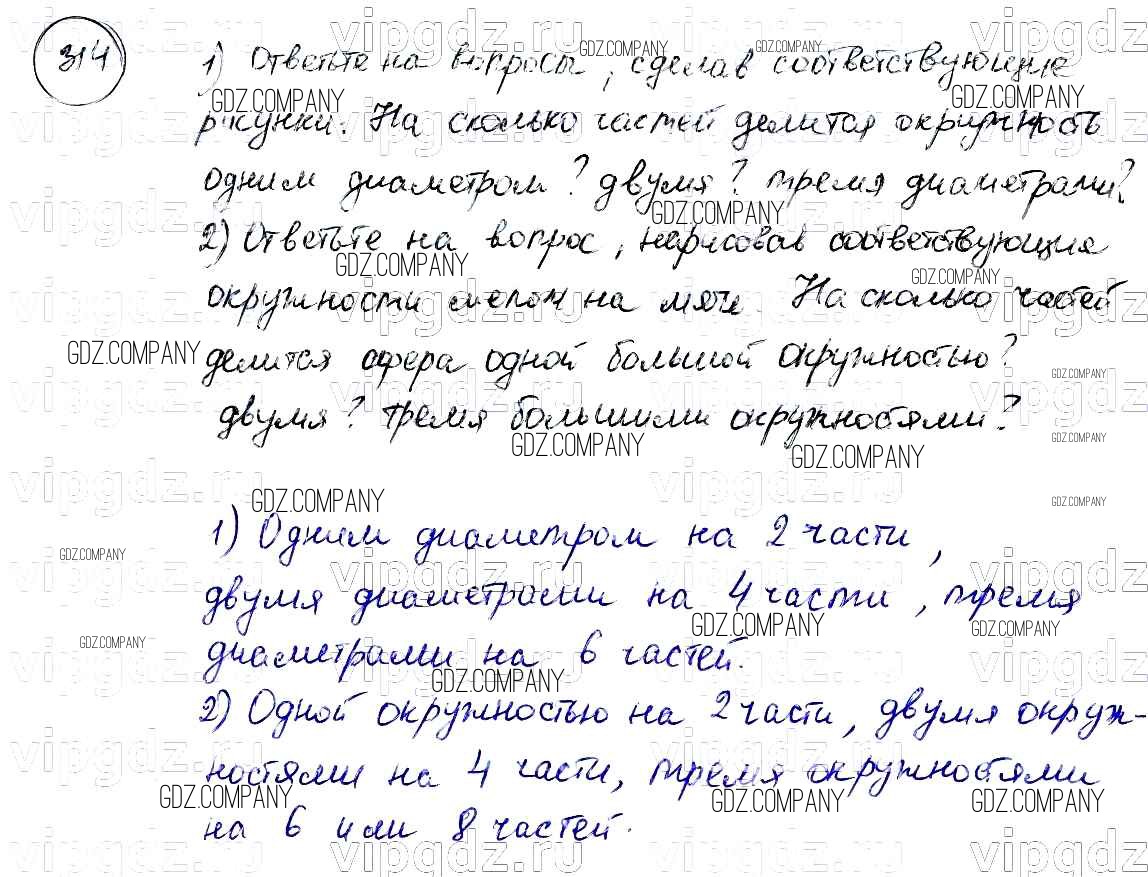 314
1) Ответьте на вопросы, сделав соответствующие
рисунки. На сколько частей делится окружность
одним диаметром? двумя? тремя диаметрами?
2) Ответьте на вопрос, нарисовав соответствующие
окружности мелом на мяче. На сколько частей
делится сфера одной большой окружностью?
двумя? тремя большими окружностями?
1) Одним диаметром на 2 части,
двумя диаметрами на 4 части, тремя
диаметрами на 6 частей.
2) Одной окружностью на 2 части, двумя окруж-
ностями на 4 части, тремя окружностями
на 6 или 8 частей.
GDZ.COMPANY
vipgdz.ru